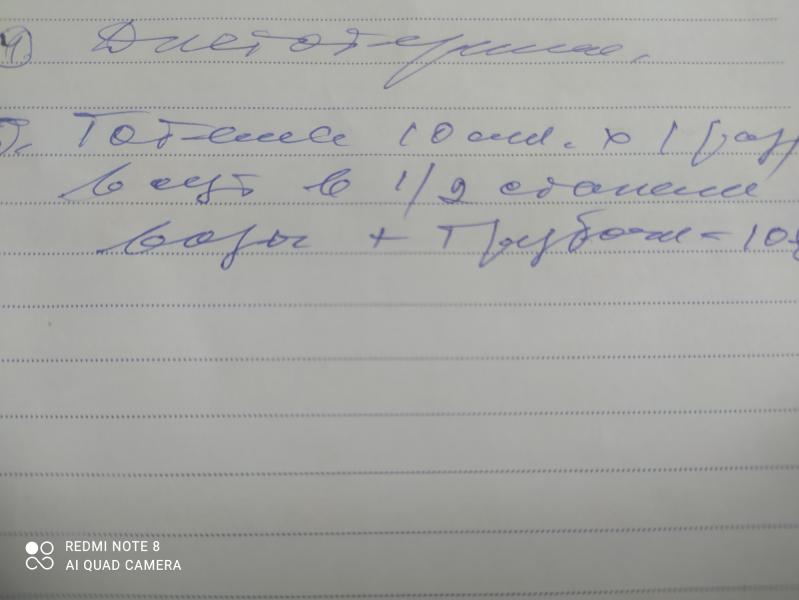 4) Диетотерапия.
5). Тотема 10 мл. х 1 раз
в сут в 1/2 стакане
воды + трубочк - 10
REDMI NOTE 8
AI QUAD CAMERA